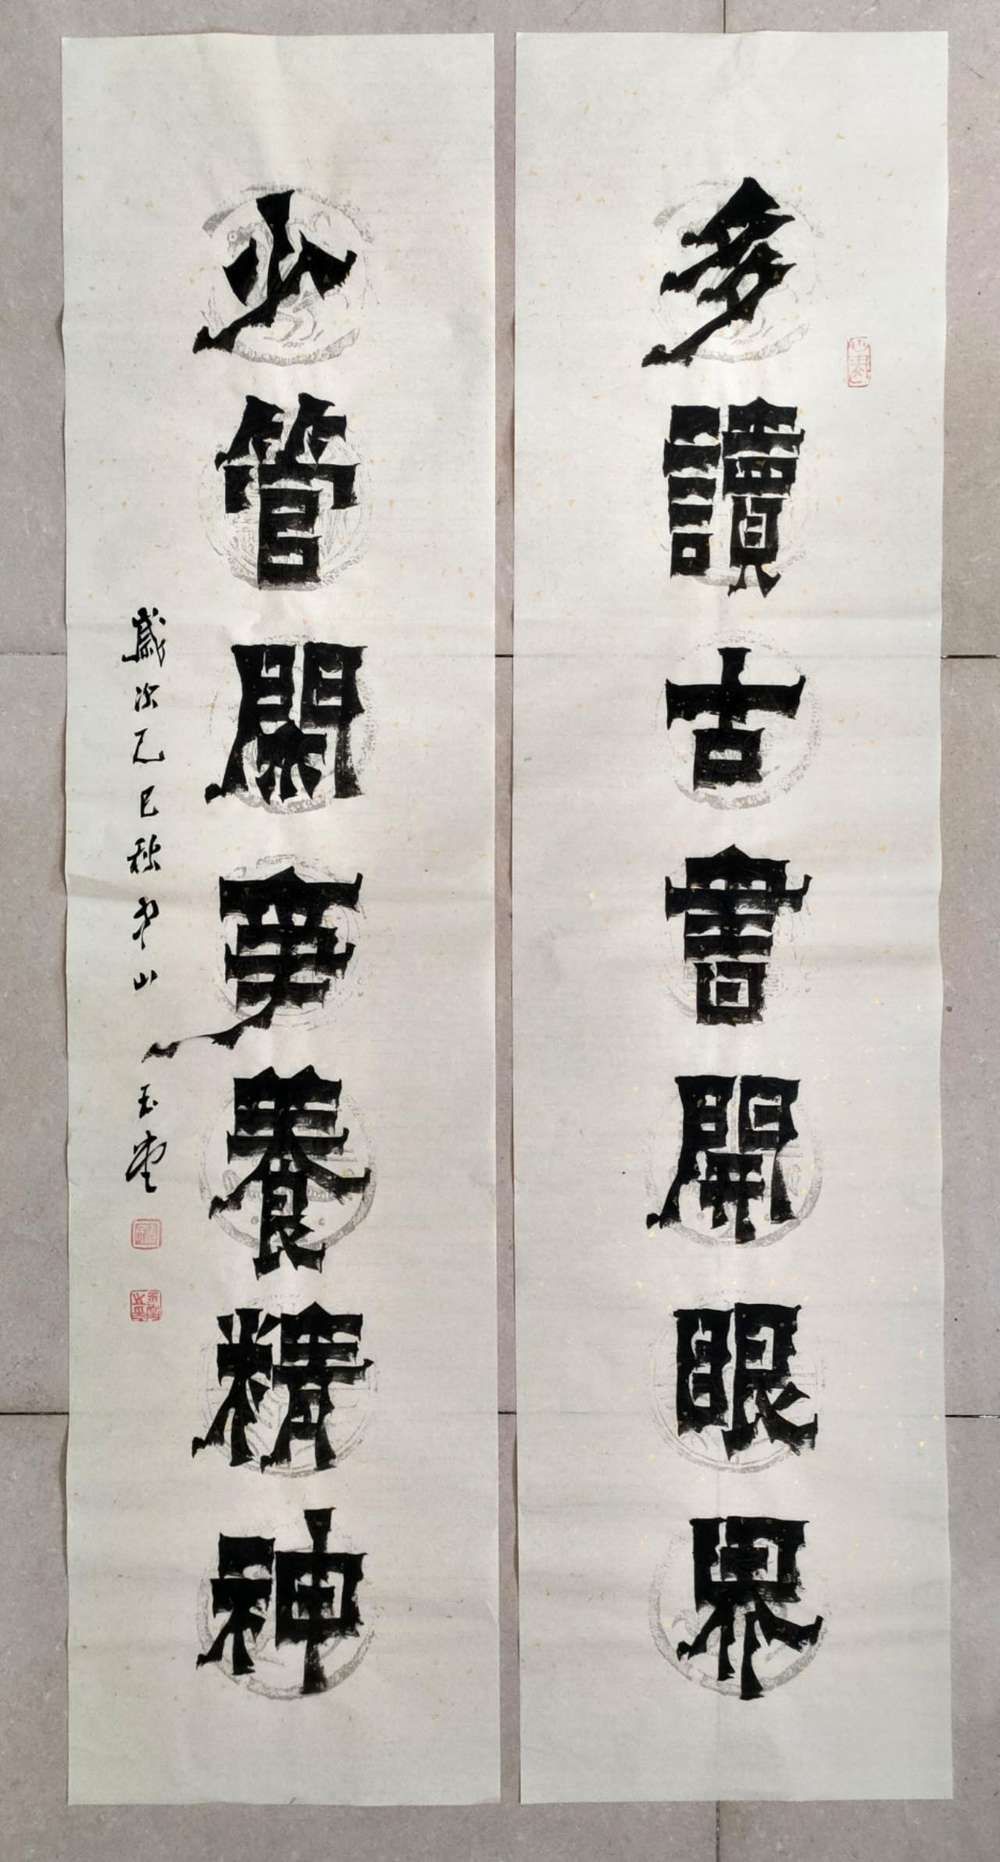 多讀古書開眼界
少管閑事養精神
歲次乙巳秋中山玉堂